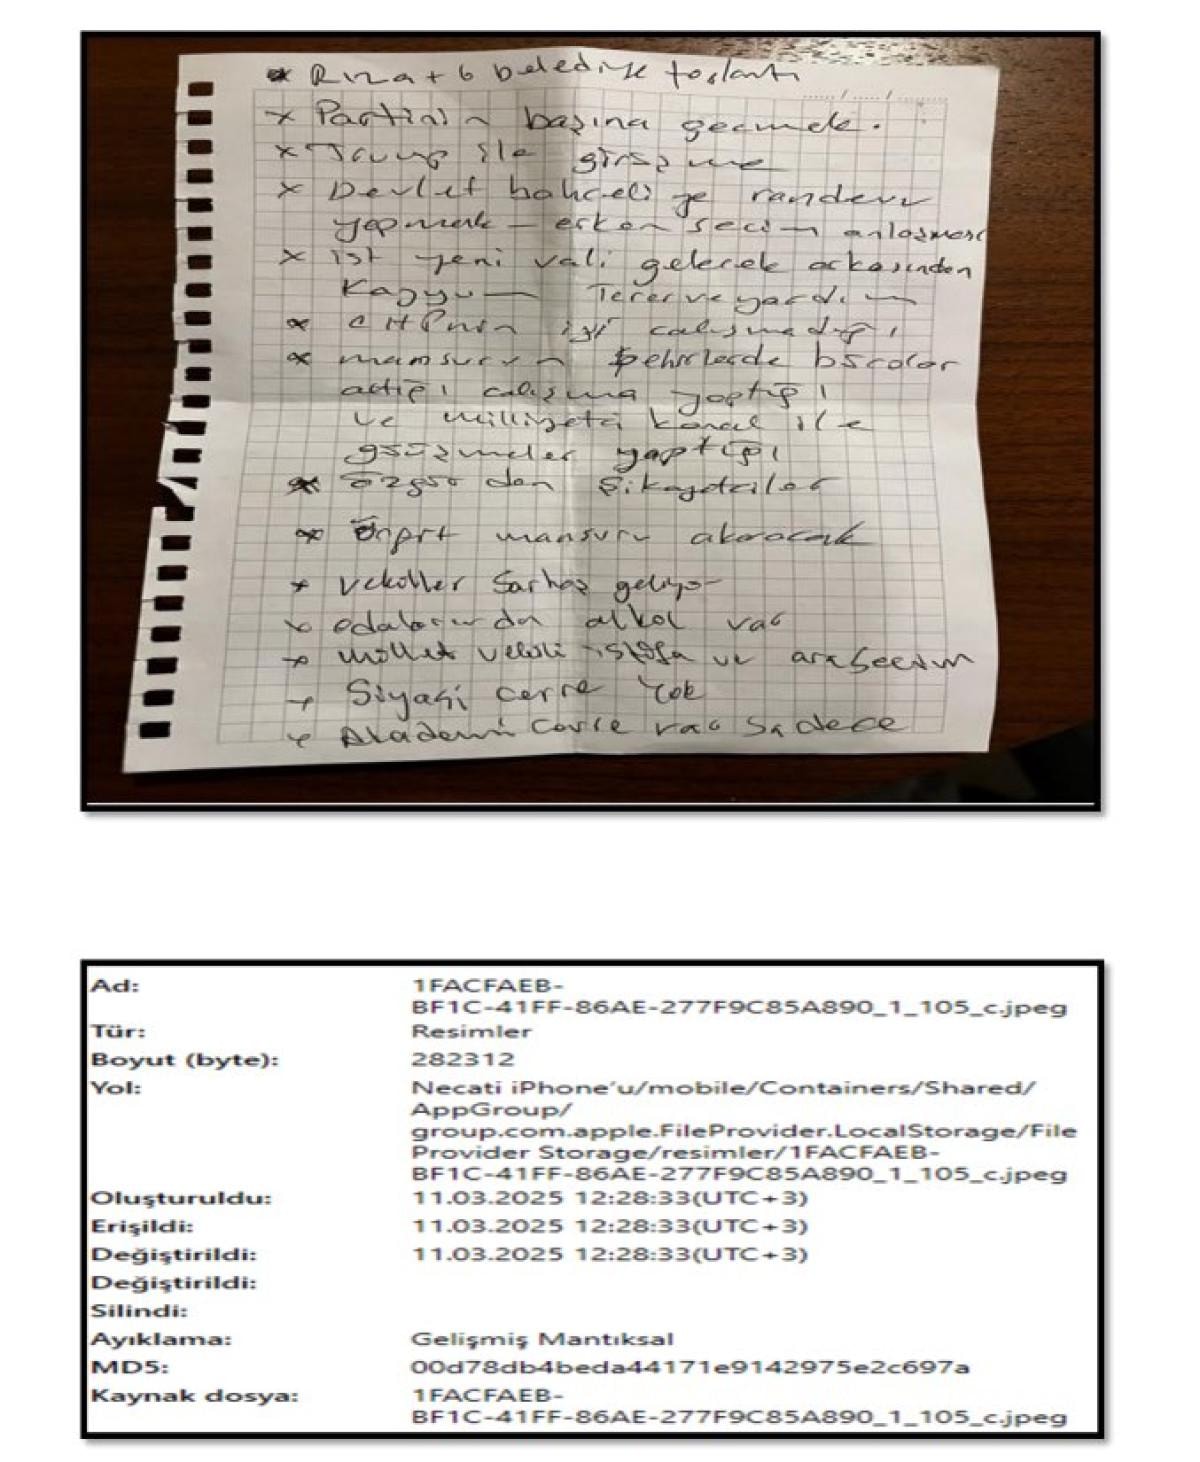 * Rıza + 6 belediye toplantı
..... / ..... / .........
x Partinin başına geçmek.
x Trump ile girişme
x Devlet bahçeli ye randevu
yapmak – erken seçim anlaşması
x ist yeni vali gelecek arkasından
Kayyum –
* CHPnin iyi çalışmadığı
* mansurun şehirlerde bürolar
açtığı çalışma yaptığı
ve milliyetçi kanal ile
görüşmeler yaptığı
* özgür den şikayetçiler
* mansuru
* vekiller Sarhoş geliyor
x odalarında alkol var
x millet vekili istifa ve ara seçim
x Siyasi çevre Yok
x Akademi Çevre var Sadece
Ad: 1FACFAEB-
BF1C-41FF-86AE-277F9C85A890_1_105_c.jpeg
Tür: Resimler
Boyut (byte): 282312
Yol: Necati iPhone'u/mobile/Containers/Shared/
AppGroup/
group.com.apple.FileProvider.LocalStorage/File
Provider Storage/resimler/1FACFAEB-
BF1C-41FF-86AE-277F9C85A890_1_105_c.jpeg
Oluşturuldu: 11.03.2025 12:28:33(UTC+3)
Erişildi: 11.03.2025 12:28:33(UTC+3)
Değiştirildi: 11.03.2025 12:28:33(UTC+3)
Değiştirildi:
Silindi:
Ayıklama: Gelişmiş Mantıksal
MD5: 00d78db4beda44171e9142975e2c697a
Kaynak dosya: 1FACFAEB-
BF1C-41FF-86AE-277F9C85A890_1_105_c.jpeg